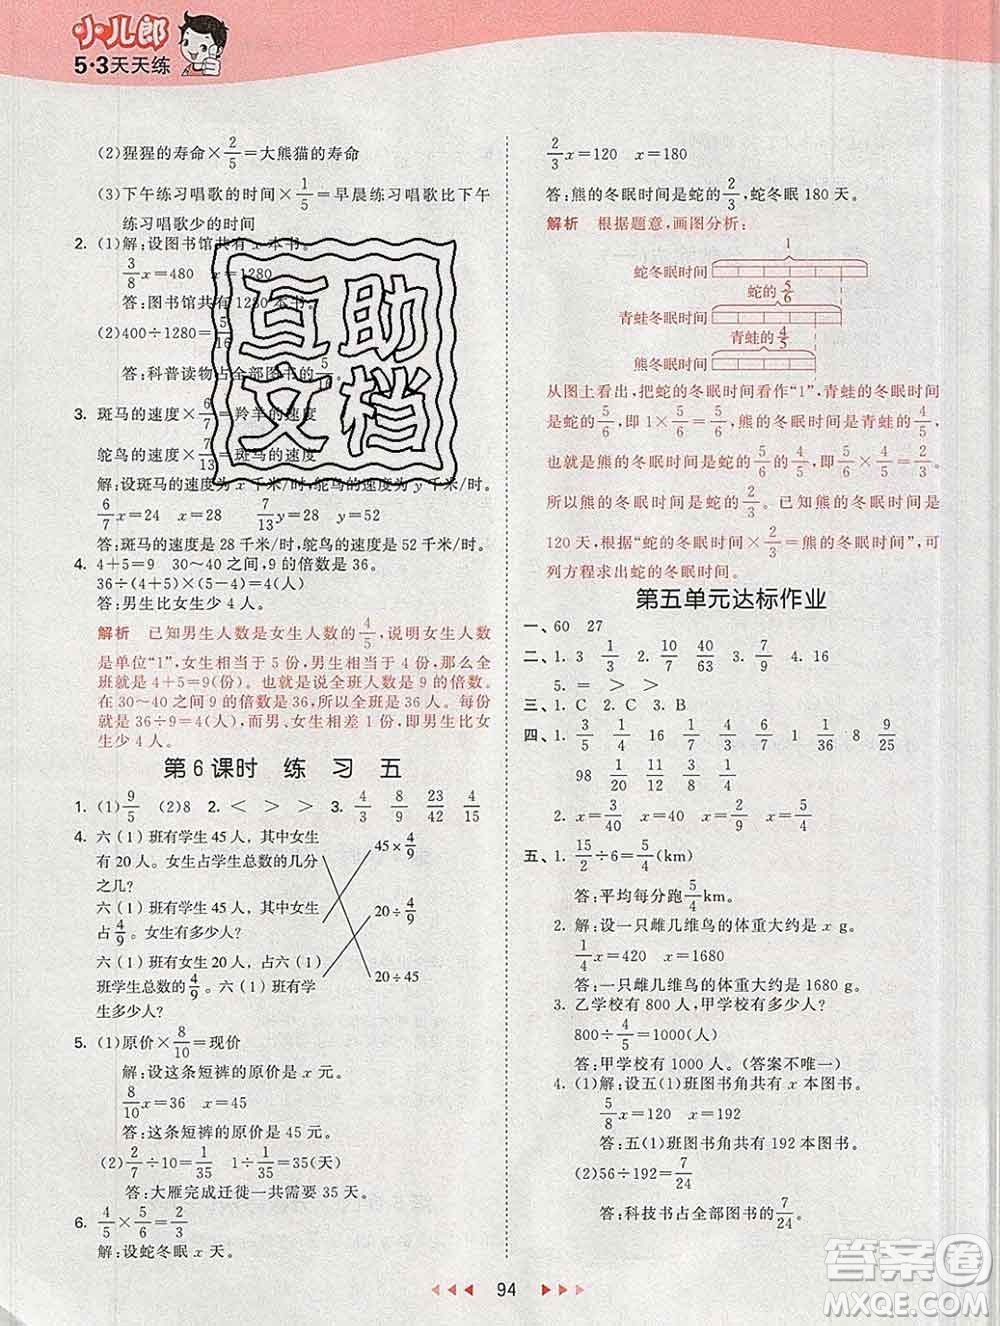 小儿郎
5·3天天练
(2)猩猩的寿命×2/5=大熊猫的寿命
(3)下午练习唱歌的时间×1/5=早晨练习唱歌比下午
练习唱歌少的时间
2. (1)解:设图书馆共有 x 本书。
3/8x=480 x=1280
答:图书馆共有 1280 本书。
(2)400÷1280=5/16
答:科普读物占全部图书的5/16。
3. 斑马的速度×6/7=羚羊的速度
鸵鸟的速度×7/13=斑马的速度
解:设斑马的速度为 x 千米/时,鸵鸟的速度为 y 千米/时。
6/7x=24 x=28 7/13y=28 y=52
答:斑马的速度是 28 千米/时,鸵鸟的速度是 52 千米/时。
4. 4+5=9 30~40 之间,9 的倍数是 36。
36÷(4+5)×(5-4)=4(人)
答:男生比女生少 4 人。
解析 已知男生人数是女生人数的4/5,说明女生人数
是单位“1”,女生相当于 5 份,男生相当于 4 份,那么全
班就是 4+5=9(份)。也就是说全班人数是 9 的倍数。
在 30~40 之间 9 的倍数是 36,所以全班有 36 人。每份
就是 36÷9=4(人),而男、女生相差 1 份,即男生比女
生少 4 人。
第 6 课时 练 习 五
1. (1)9/5 (2)8 2. < > > 3. 4/3 8/9 23/42 4/15
4. 六(1)班有学生 45 人,其中女生
有 20 人。女生占学生总数的几分
之几?
45×4/9
六(1)班有学生 45 人,其中女生
占4/9。女生有多少人?
20÷4/9
六(1)班有女生 20 人,占六(1)
班学生总数的4/9。六(1)班有学
生多少人?
20÷45
5. (1)原价×8/10=现价
解:设这条短裤的原价是 x 元。
8/10x=36 x=45
答:这条短裤的原价是 45 元。
(2)2/7÷10=1/35 1÷1/35=35(天)
答:大雁完成迁徙一共需要 35 天。
6. 4/5×5/6=2/3
解:设蛇冬眠 x 天。
2/3x=120 x=180
答:熊的冬眠时间是蛇的2/3,蛇冬眠 180 天。
解析 根据题意,画图分析:
1
蛇冬眠时间
蛇的5/6
青蛙冬眠时间
青蛙的4/5
熊冬眠时间
从图上看出,把蛇的冬眠时间看作“1”,青蛙的冬眠时间
是蛇的5/6,即 1×5/6=5/6,熊的冬眠时间是青蛙的4/5,
也就是熊的冬眠时间是蛇的5/6的4/5,即5/6×4/5=2/3。
所以熊的冬眠时间是蛇的2/3。已知熊的冬眠时间是
120 天,根据“蛇的冬眠时间×2/3=熊的冬眠时间”,可
列方程求出蛇的冬眠时间。
第五单元达标作业
一、60 27
二、1. 3 1/3 2. 7/10 40/63 3. 7/9 4. 16
5. = > >
三、1. C 2. C 3. B
四、1. 3/5 1/4 16 1/7 4/3 6/7 1/4 1/2 8 9/25
98 1/20 11/8 4/3 3/4
2. x=3/10 x=40 x=2/9 x=4
五、1. 15/2÷6=5/4(km)
答:平均每分跑5/4km。
2. 解:设一只雌几维鸟的体重大约是 x g。
1/4x=420 x=1680
答:一只雌几维鸟的体重大约是 1680 g。
3. 乙学校有 800 人,甲学校有多少人?
800÷4/5=1000(人)
答:甲学校有 1000 人。(答案不唯一)
4. (1)解:设五(1)班图书角共有 x 本图书。
5/8x=120 x=192
答:五(1)班图书角共有 192 本图书。
(2)56÷192=7/24
答:科技书占全部图书的7/24。
94
互助
文档
答案圈
MXQE.COM